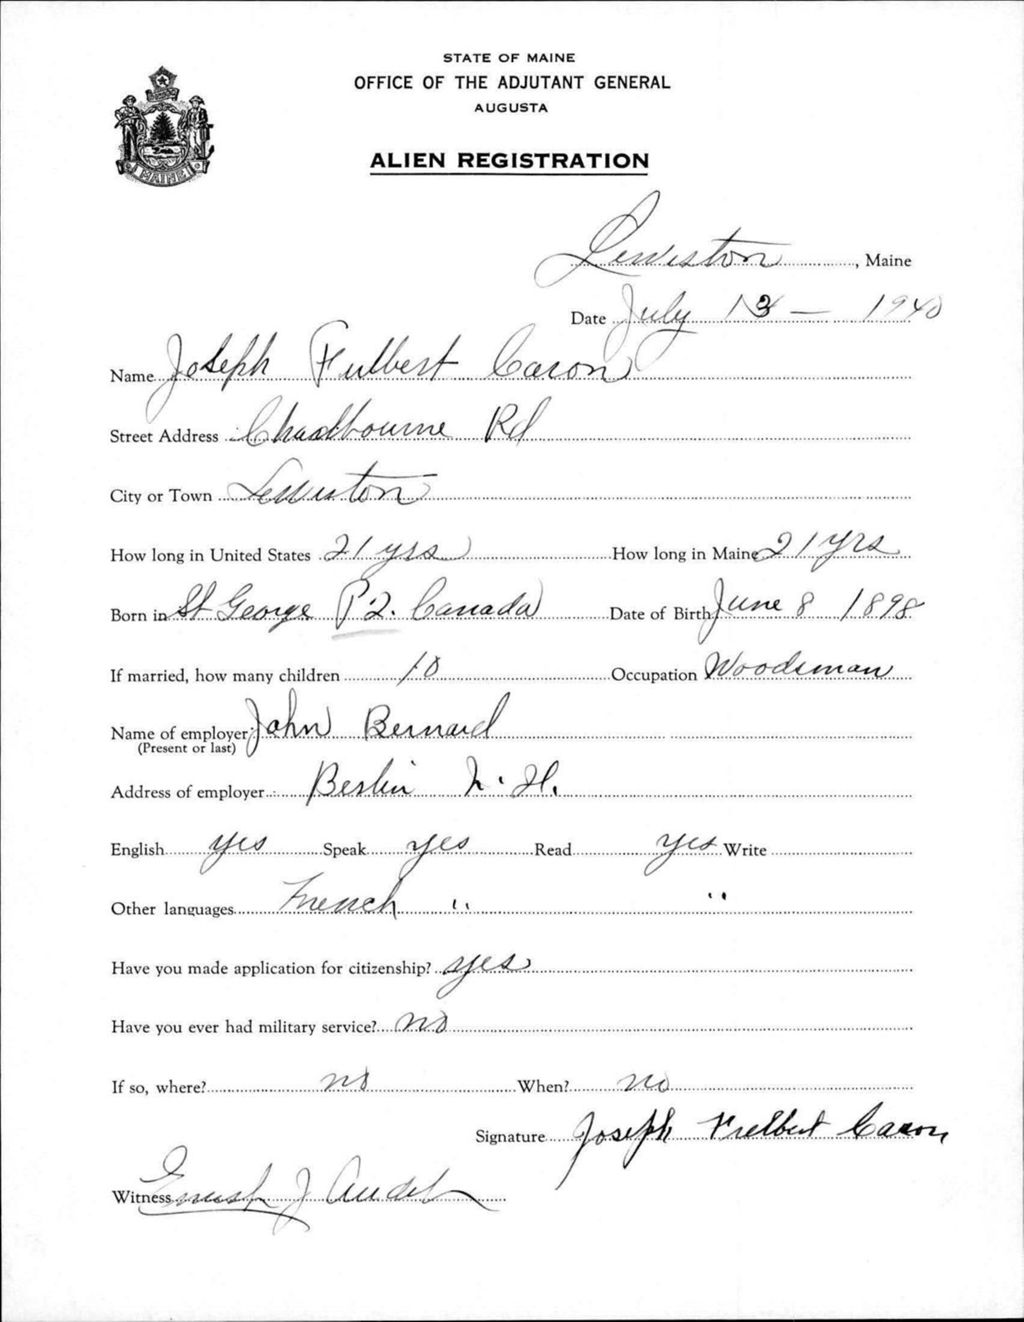 STATE OF MAINE
OFFICE OF THE ADJUTANT GENERAL
AUGUSTA
MAINE
ALIEN REGISTRATION
Lewiston, Maine
Date July 13 — 1940
Name Joseph Fulbert Caron
Street Address Chadbourne Rd
City or Town Lewiston
How long in United States 21 yrs How long in Maine 21 yrs
Born in St George P2. Canada Date of Birth June 8 1898
If married, how many children 10 Occupation Woodsman
Name of employer John Bernard
(Present or last)
Address of employer Berlin N. H.
English yes Speak yes Read yes Write
Other languages French " "
Have you made application for citizenship? yes
Have you ever had military service? no
If so, where? no When? no
Signature Joseph Fulbert Caron
Witness J Audet